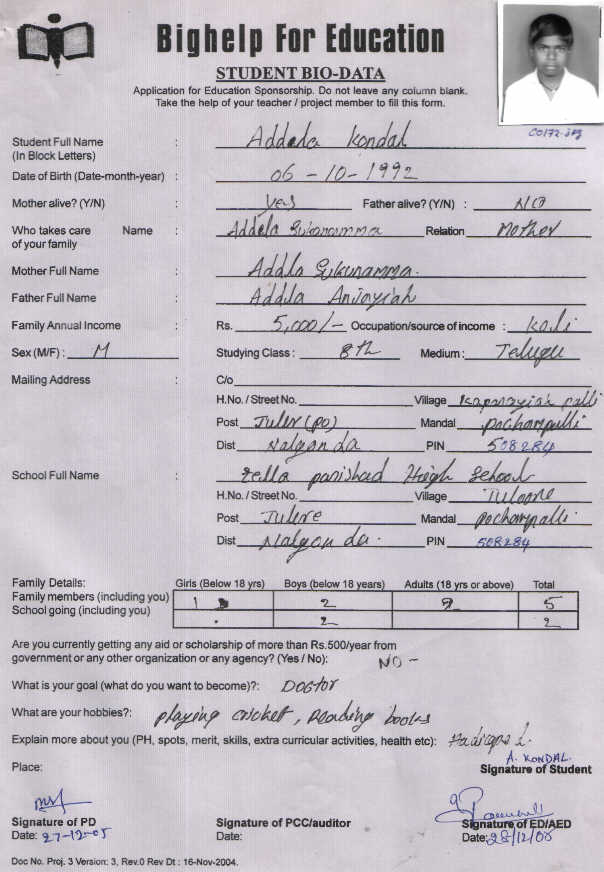 Bighelp For Education
STUDENT BIO-DATA
Application for Education Sponsorship. Do not leave any column blank.
Take the help of your teacher / project member to fill this form.
C0172.jpg
Student Full Name : Addela Kondal
(In Block Letters)
Date of Birth (Date-month-year) : 06 - 10 - 1992
Mother alive? (Y/N) : Yes Father alive? (Y/N) : NO
Who takes care Name : Addela Sukanamma Relation Mother
of your family
Mother Full Name : Addla Sukunamma.
Father Full Name : Addila Anjayiah
Family Annual Income : Rs. 5,000/- Occupation/source of income : Kooli
Sex (M/F) : M Studying Class : 8th Medium : Telugu
Mailing Address : C/o
H.No. / Street No. Village palli
Post Juler (po) Mandal pochampalli
Dist Nalgonda PIN 508284
School Full Name : zella parishad High School
H.No. / Street No. Village
Post Julure Mandal pochampalli
Dist Nalgonda. PIN 508284
Family Details: Girls (Below 18 yrs) Boys (below 18 years) Adults (18 yrs or above) Total
Family members (including you) 1 2 2 5
School going (including you) . 2 2
Are you currently getting any aid or scholarship of more than Rs.500/year from
government or any other organization or any agency? (Yes / No): NO -
What is your goal (what do you want to become)?: Doctor
What are your hobbies?: playing cricket, Reading books
Explain more about you (PH, spots, merit, skills, extra curricular activities, health etc):
A. KONDAL.
Place: Signature of Student
Signature of PD Signature of PCC/auditor Signature of ED/AED
Date: 27-12-05 Date: Date: 28/12/05
Doc No. Proj. 3 Version: 3, Rev.0 Rev Dt : 16-Nov-2004.